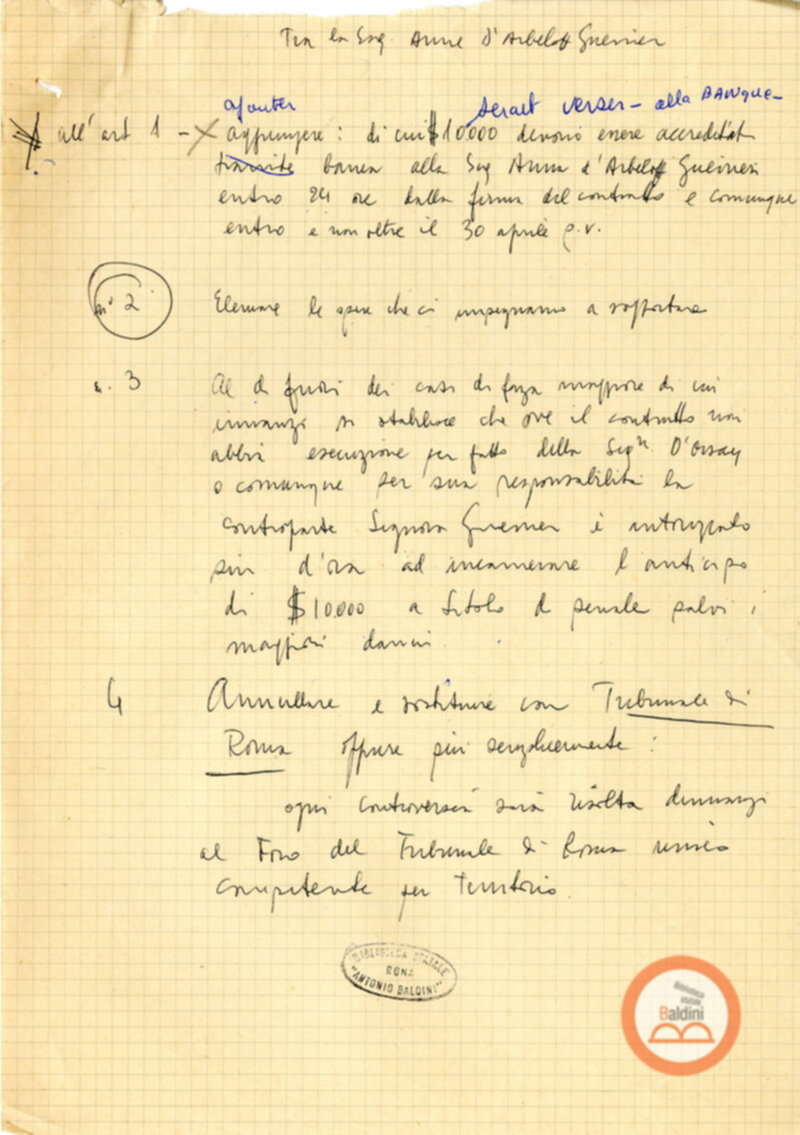 Tra la Sig Anne D'Arbeloff Guerrier
ajouter serait verser - alla BANQUE -
all'art 1 - aggiungere: di cui $ 10.000 devono essere accreditati
tramite banca alla Sig Anna d'Arbeloff Guerrier
entro 24 ore dalla firma del contratto e comunque
entro e non oltre il 30 aprile p.v.
n° 2 Elencare le spese che ci impegnamo a sopportare
n. 3 Al di fuori dei casi di forza maggiore di cui
innanzi si stabilisce che ove il contratto non
abbia esecuzione per fatto della Sig.ra D'Orsay
o comunque per sua responsabilità la
controparte Signora Guerrier è autorizzata
sin d'ora ad incamerare l'anticipo
di $ 10.000 a titolo di penale salvi i
maggiori danni.
4 Annullare e sostituire con Tribunale di
Roma oppure più semplicemente:
ogni controversia sarà risolta dinnanzi
al Foro del Tribunale di Roma unico
competente per Territorio.
BIBLIOTECA STATALE
ROMA
"ANTONIO BALDINI"
Biblioteca
statale
Baldini